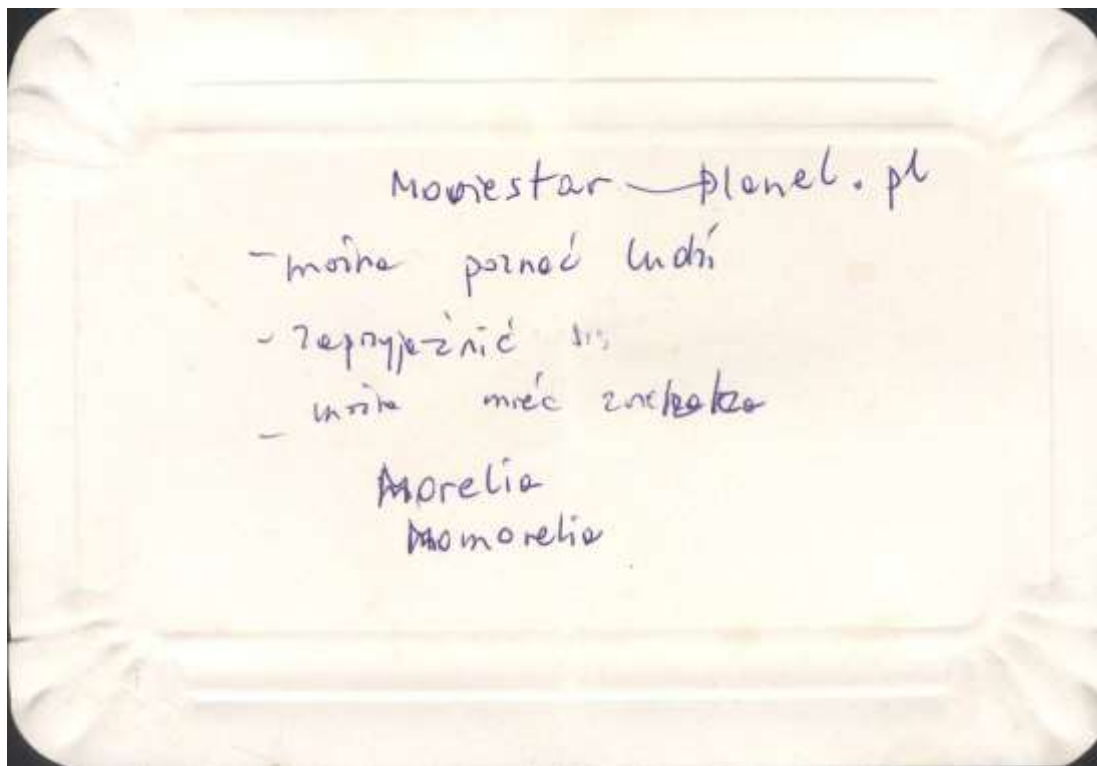 Moviestar planet.pl
- można poznać ludzi
- zaprzyjaźnić się
- można mieć zwierzaka
Amorelia
Momorelia